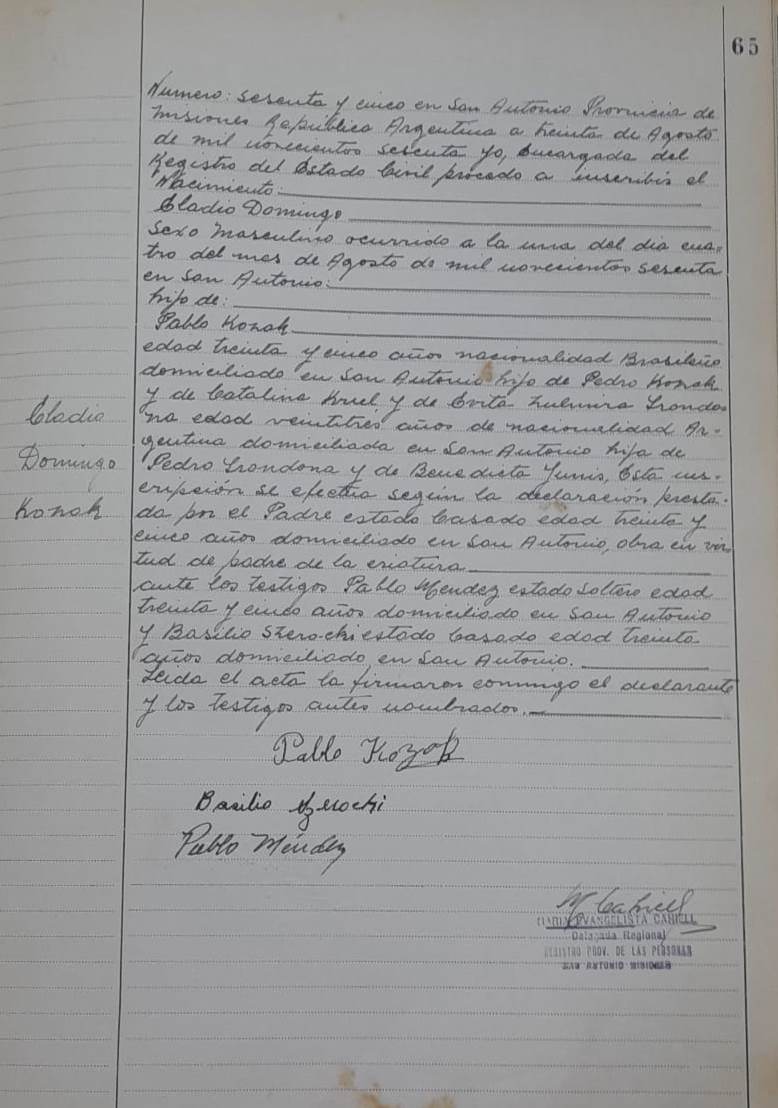 65
Numero: sesenta y cinco en San Antonio Provincia de
Misiones Republica Argentina a treinta de Agosto
de mil novecientos sesenta yo, Encargada del
Registro del Estado Civil procedo a inscribir el
Nacimiento:
Cladio Domingo
Sexo Masculino ocurrido a la una del dia cua-
tro del mes de Agosto de mil novecientos sesenta
en San Antonio:
hijo de:
Pablo Konak
edad treinta y cinco años nacionalidad Brasileño
domiciliado en San Antonio hijo de Pedro Konak
y de Catalina Kruel y de Evita Zulmira Trondo
na edad veintitrés años de nacionalidad Ar-
gentina domiciliada en San Antonio hija de
Pedro Trondona y de Benedicta Yunis, Esta ins-
cripción se efectúa según la declaración presta-
da por el Padre estado Casado edad treinta y
cinco años domiciliado en San Antonio, obra en vir
tud de padre de la criatura
ante los testigos Pablo Mendez estado Soltero edad
treinta y cinco años domiciliado en San Antonio
y Basilio Szerochi estado Casado edad treinta
años domiciliado en San Antonio.
Leida el acta la firmaron conmigo el declarante
y los testigos antes nombrados.
Cladio
Domingo
Konak
Pablo Kozak
Basilio Szerochi
Pablo Méndez
M Cabriell
EVANGELISTA CABIELL
Delegada Regional
REGISTRO PROV. DE LAS PERSONAS
SAN ANTONIO MISIONES